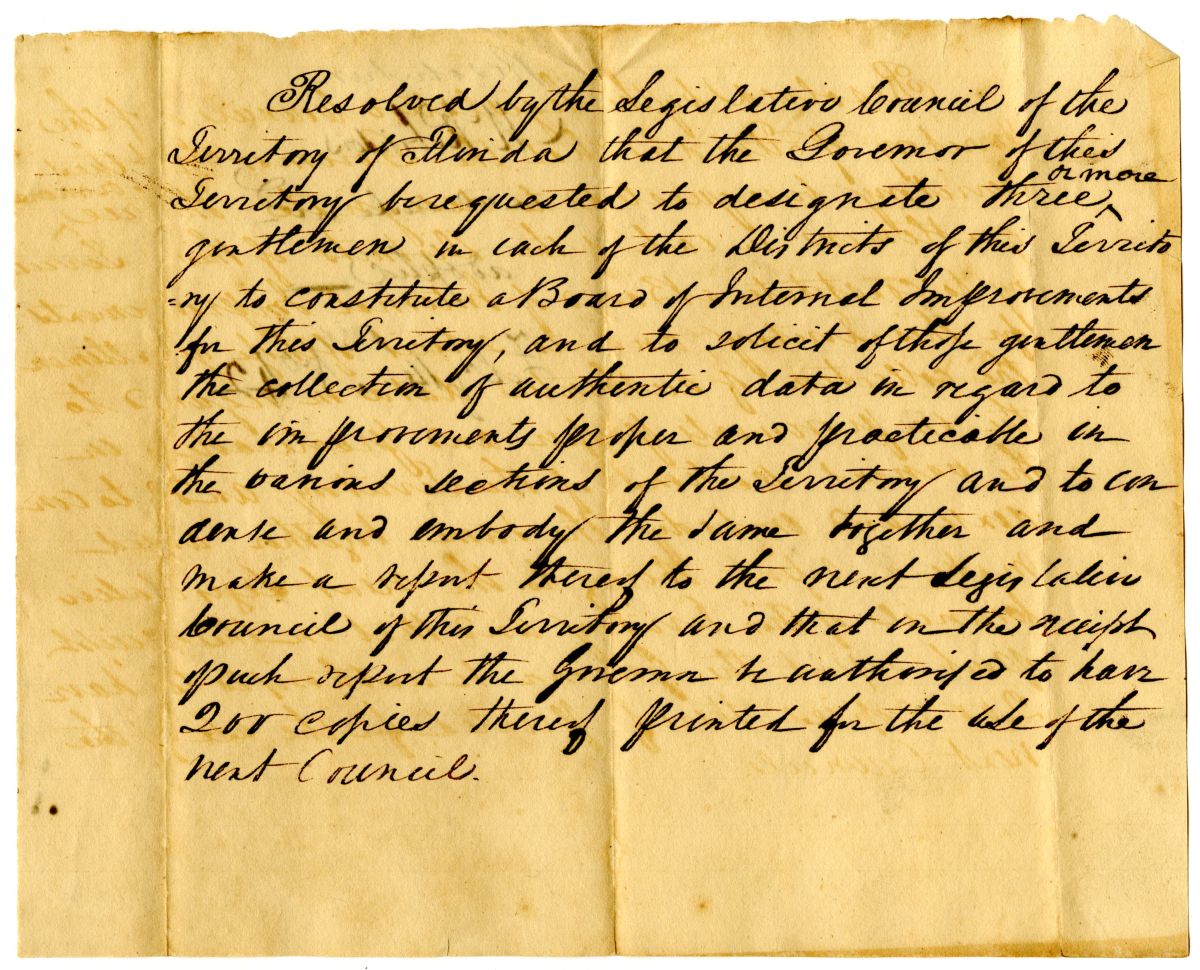 Resolved by the Legislative Council of the
Territory of Florida that the Governor of this
or more
Territory be requested to designate three ‸
gentlemen in each of the Districts of this Territo
=ry to constitute a Board of Internal Improvements
for this Territory, and to solicit of those gentlemen
the collection of authentic data in regard to
the improvements proper and practicable in
the various sections of the Territory and to con
dense and embody the same together and
make a report thereof to the next Legislative
Council of this Territory and that on the receipt
of such report the Governor be authorised to have
200 copies thereof printed for the use of the
next Council.